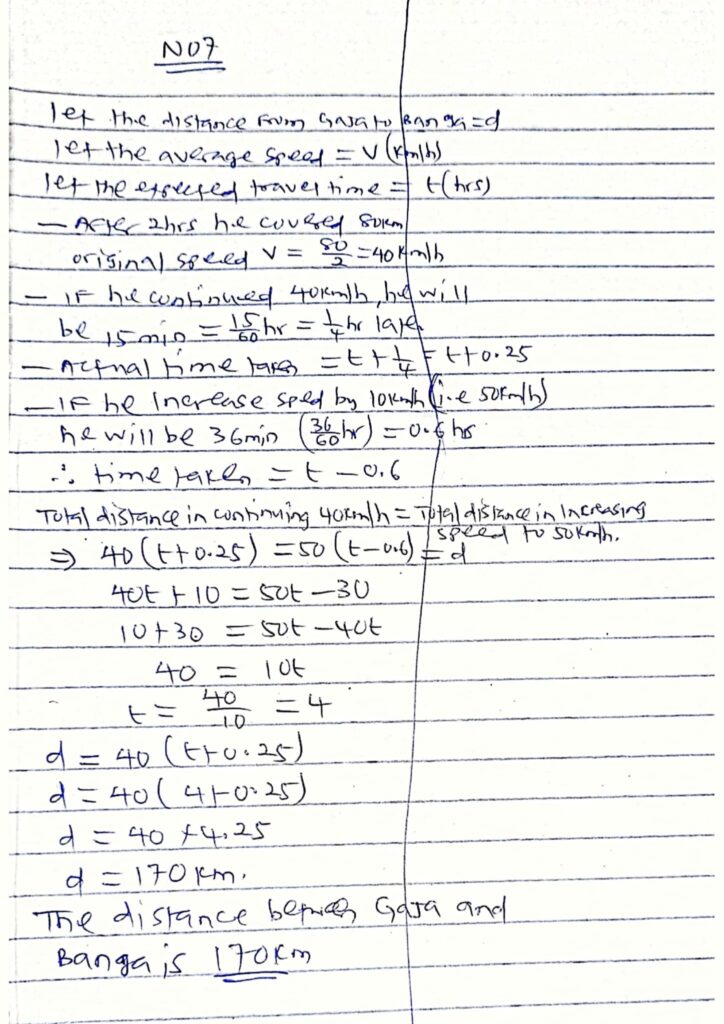 NO7
let the distance from Gaja to Banga = d
let the average speed = V (km/h)
let the expected travel time = t (hrs)
— After 2hrs he covered 80km
original speed V = 80/2 = 40km/h
— IF he continued 40km/h, he will
be 15 min = 15/60 hr = 1/4 hr late
— Actual time taken = t + 1/4 = t + 0.25
— IF he increase sped by 10km/h (i.e 50km/h)
he will be 36min (36/60 hr) = 0.6 hrs
∴ time taken = t — 0.6
Total distance in continuing 40km/h = Total distance in Increasing
speed to 50km/h.
⇒ 40(t+0.25) = 50(t—0.6) = d
40t + 10 = 50t — 30
10 + 30 = 50t — 40t
40 = 10t
t = 40/10 = 4
d = 40(t+0.25)
d = 40(4+0.25)
d = 40 × 4.25
d = 170 km.
The distance between Gaja and
Banga is 170km